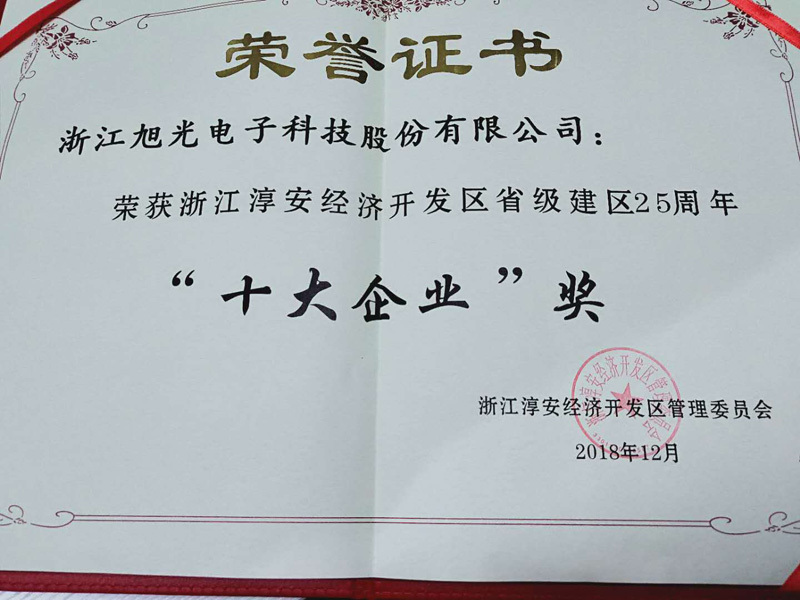 荣誉证书
浙江旭光电子科技股份有限公司：
荣获浙江淳安经济开发区省级建区25周年
“十大企业”奖
浙江淳安经济开发区管理委员会
2018年12月